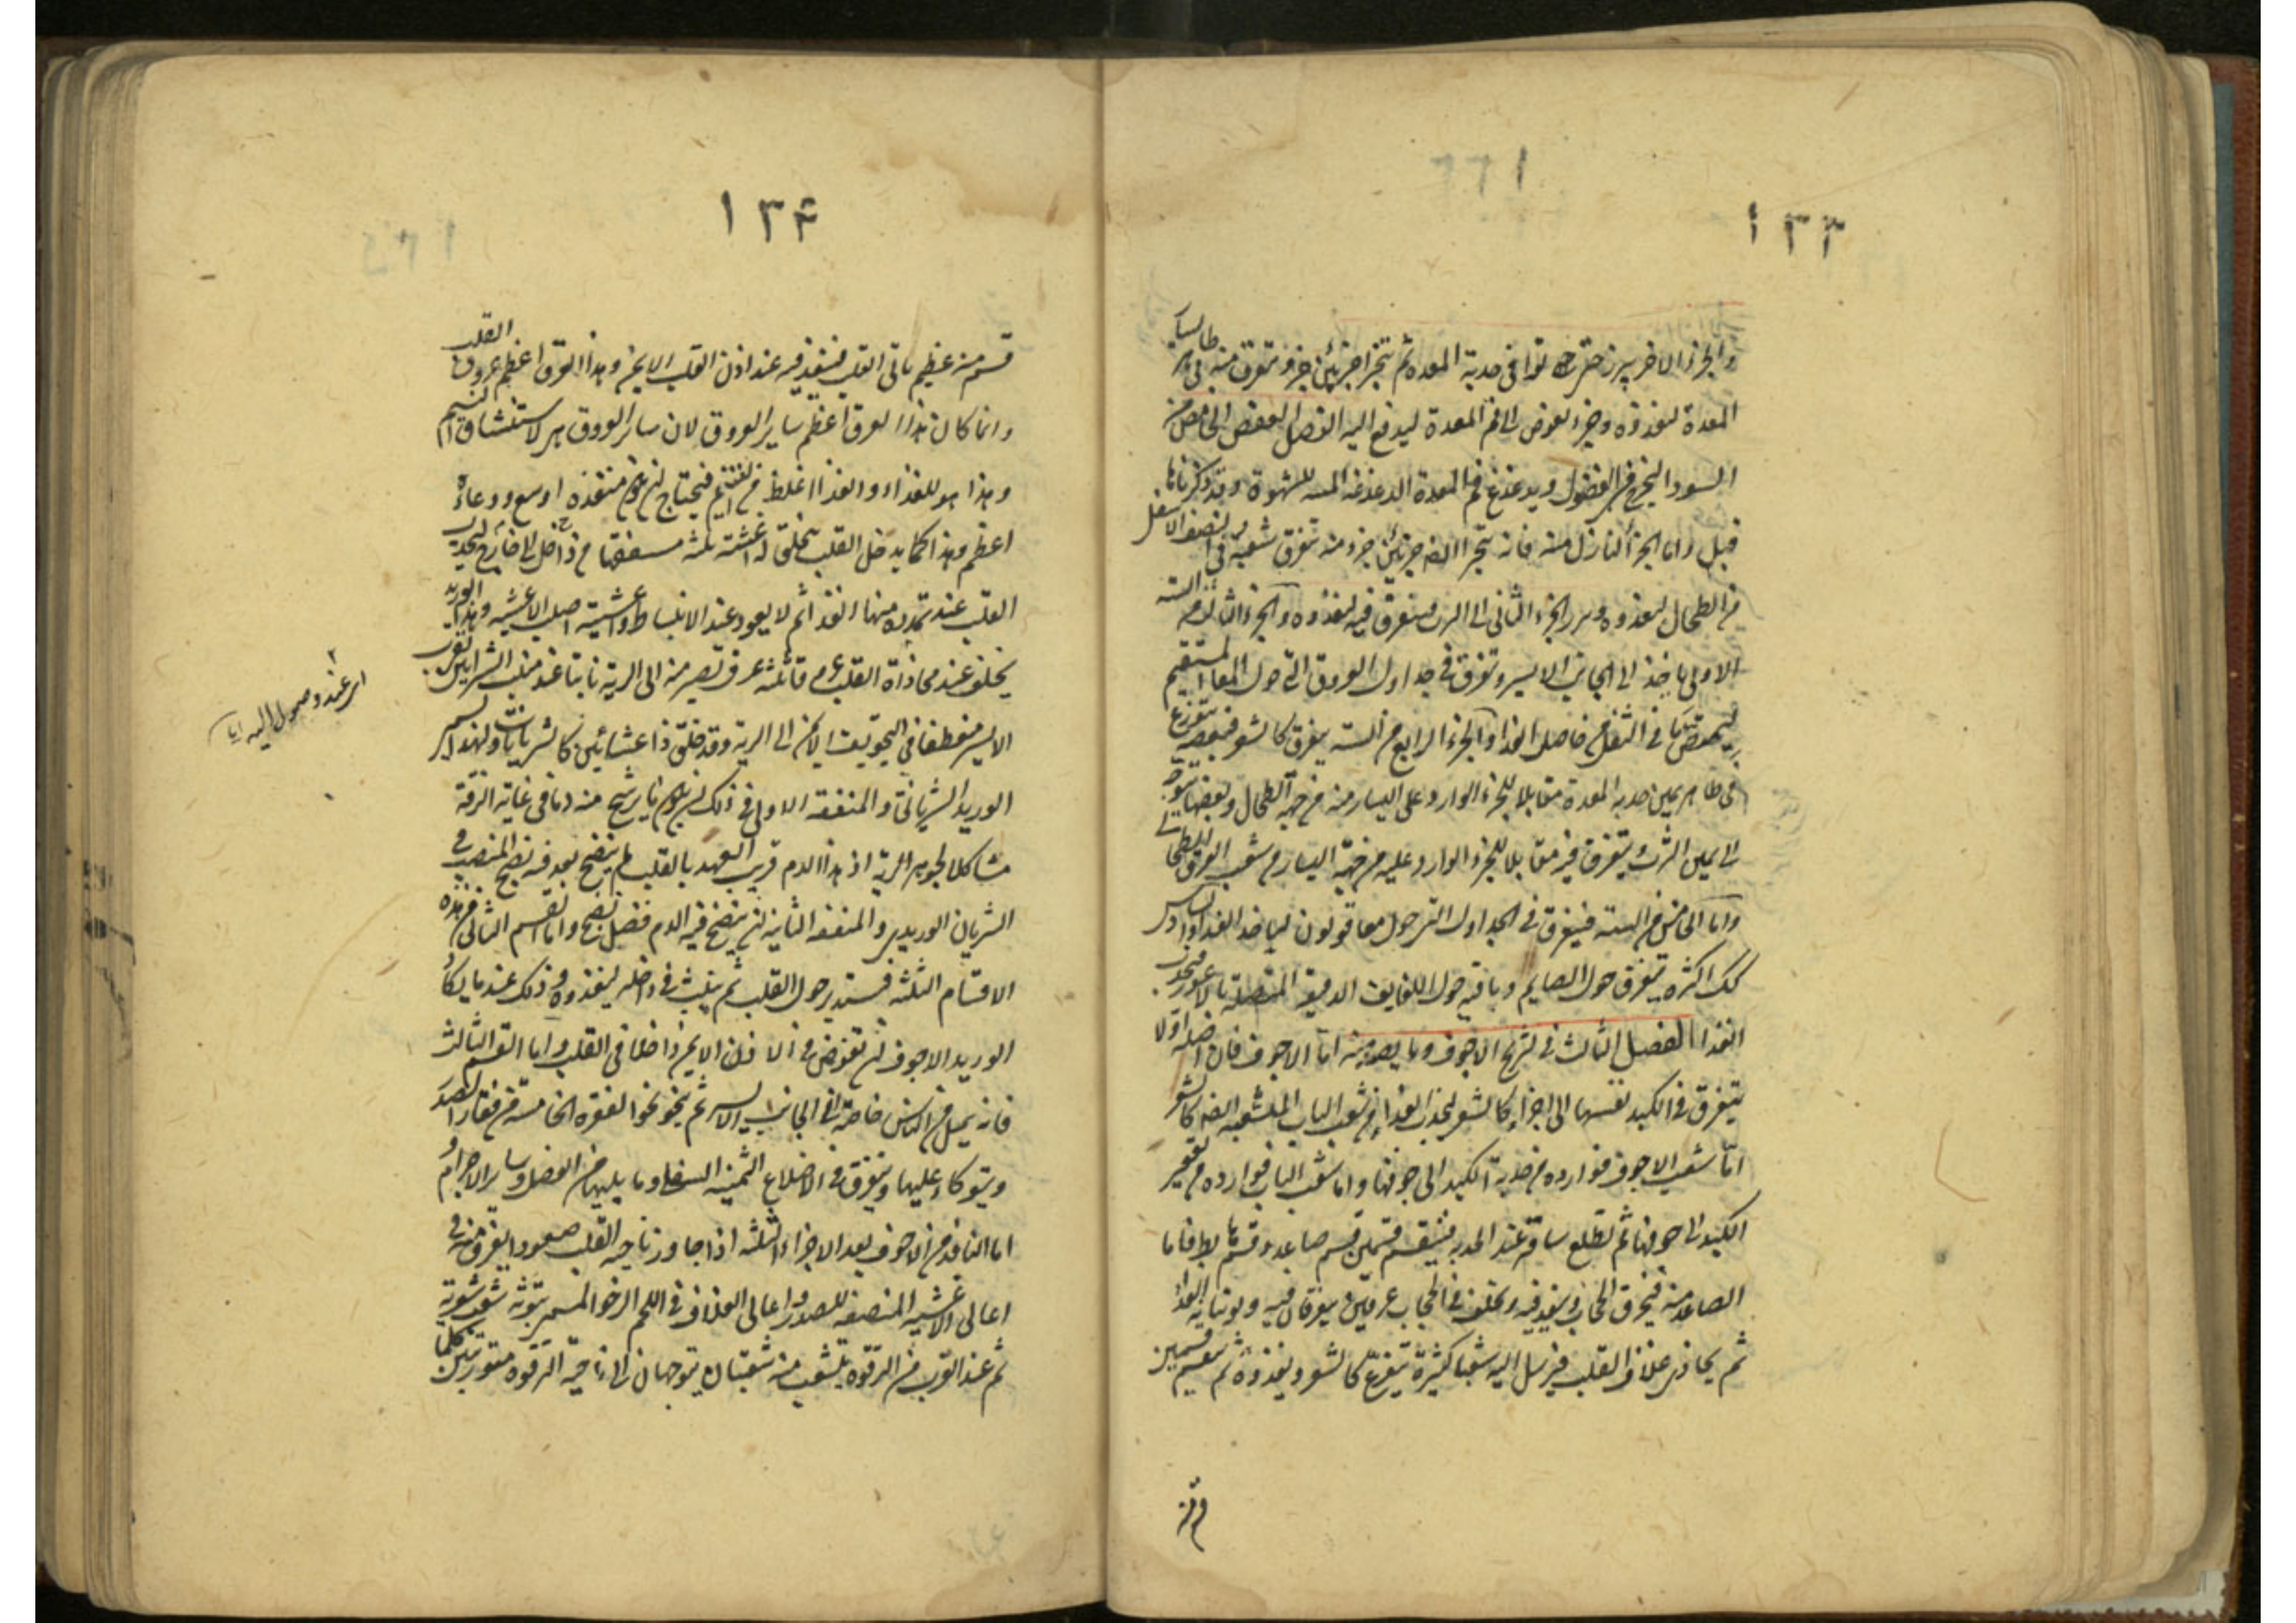 ١٣٣
والجزء الاخر يبرز حتى توافى حدبة المعدة ثم يتجزا جزئين جزء يتفرق منه فى ظاهر يسار
المعدة ليغذوه وجزء يغوص الى فم المعدة ليدفع اليه الفضل العفص الحامض من
السوداء ليخرج فى الفضول ويدغدغ فم المعدة الدغدغة المنبهة للشهوة وقد ذكرناها
قبل واما الجزء النازل منه فانه يتجزا ايضا جزئين جزء منه يتفرق شعبه فى النصف الاسفل
من الطحال ليغذوه ويبرز الجزء الثانى الى الثرب فيتفرق فيه ليغذوه والجزء الثالث من الستة
الاولى ياخذ الى الجانب الايسر ويتفرق فى جداول العروق التى حول المعاء المستقيم
ليمتص ما فى الثفل من حاصل الغذاء والجزء الرابع من الستة يتفرق كالشعر فبعضه يتوزع
فى ظاهر يمين حدبة المعدة مقابلا للجزء الوارد على اليسار منه من جهة الطحال وبعضها يتوجه
الى يمين الثرب ويتفرق فيه مقابلا للجزء الوارد عليه من جهة اليسار من شعب العرق الطحالى
واما الخامس من الستة فيتفرق فى الجداول التى حول معا قولون لياخذ الغذاء والسادس
كك اكثره يتفرق حول الصايم وباقيه حول اللفايف الدقيقة المتصلة بالاعور فيجذب
الغذا الفصل الثالث فى تشريح الاجوف وما يصعد منه اما الاجوف فان اصله اولا
يتفرق فى الكبد نفسها الى اجزاء كالشعر ليجذب الغذاء من شعب الباب المتشعبة ايضا كالشعر
اما شعب الاجوف فواردة من حدبة الكبد الى جوفها واما شعب الباب فواردة من تقعير
الكبد الى جوفها ثم تطلع ساقه عند الحدبة فينقسم قسمين قسم صاعد وقسم هابط فاما
الصاعد منه فيخرق الحجاب وينفذ فيه ويخلف فى الحجاب عرقين يتفرقان فيه ويوتيانه الغذاء
ثم يحاذى غلاف القلب فيرسل اليه شعبا كثيرة يتفرع كالشعر ويغذوه ثم ينقسم قسمين
١٣۴
قسم منه عظيم ياتى القلب فينفذ فيه عند اذن القلب الايمن وهذا العرق اعظم عروق القلب
وانما كان هذا العرق اعظم ساير العروق لان ساير العروق هى لاستنشاق النسيم
وهذا هو للغذاء والغذا اغلظ من النسيم فيحتاج ان يكون منفذه اوسع ووعاؤه
اعظم وهذا كما يدخل القلب يتخلق له اغشية ثلثة مسقفها من داخل الى خارج ليجذب
القلب عند تمدده منها الغذا ثم لا يعود عند الانبساط واغشيته اصلب الاغشية وهذا الوريد
يخلف عند محاذاة القلب عروقا ثلثة عرق يصير منه الى الرية نابتا عند منبت الشرايين بقرب
الايسر منعطفا فى التجويف الايمن الى الرية وقد خلق ذا غشائين كالشريانات ولهذا يسمى
الوريد الشريانى والمنفعة الاولى فى ذلك ان يكون ما يرشح منه دما فى غاية الرقة
مشاكلا لجوهر الرية اذ هذا الدم قريب العهد بالقلب لم ينضج بعد فيه نضج المنصب فى
الشريان الوريدى والمنفعة الثانية ان ينضج فيه الدم فضل نضج واما القسم الثانى من هذه
الاقسام الثلثة فيستدير حول القلب ثم ينبث فى داخله ليغذوه وذلك عند ما يكاد
الوريد الاجوف ان يغوص فى الاذن الايمن داخلا فى القلب واما القسم الثالث
فانه يميل من الناس خاصة الى الجانب الايسر ثم ينحو نحو الفقرة الخامسة من فقار الصدر
ويتوكاء عليها ويتفرق فى الاضلاع الثمنية السفلى وما يليها من العضل وساير الاجرام و
اما النافذ من الاجوف بعد الاجزاء الثلثة اذا جاوز ناحية القلب صعودا يفرق منه فى
اعالى الاغشية المنصفة للصدر واعالى الغلاف وفى اللحم الرخو المسمى توثة شعب شعرية
ثم عند القرب من الترقوة يتشعب منه شعبتان يتوجهان الى ناحية الترقوة متوربتين كلما
اى عند وصول اليه ايا